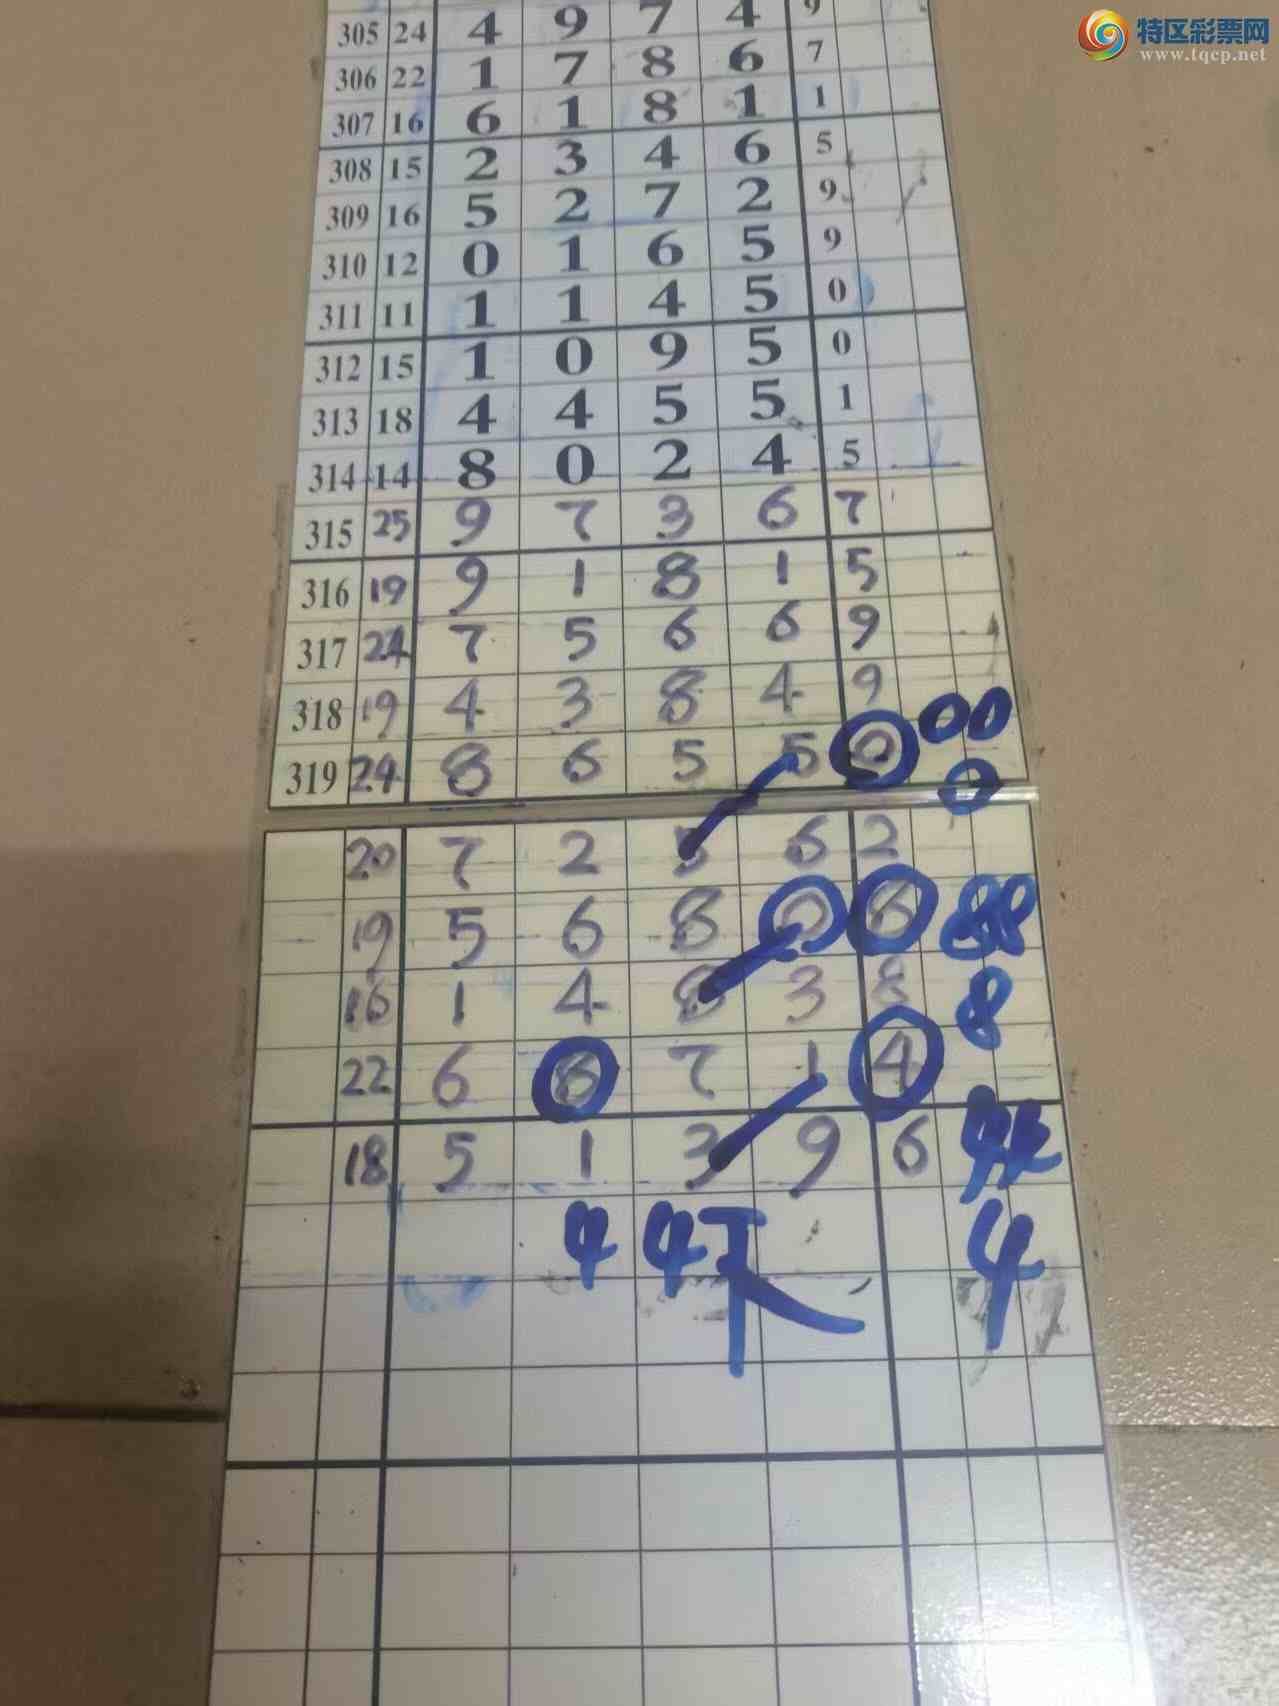 特区彩票网
www.tqcp.net
305 24 4 9 7 4 9
306 22 1 7 8 6 7
307 16 6 1 8 1 1
308 15 2 3 4 6 5
309 16 5 2 7 2 9
310 12 0 1 6 5 9
311 11 1 1 4 5 0
312 15 1 0 9 5 0
313 18 4 4 5 5 1
314 14 8 0 2 4 5
315 25 9 7 3 6 7
316 19 9 1 8 1 5
317 24 7 5 6 6 9
318 19 4 3 8 4 9 00
319 24 8 6 5 5 0 0
20 7 2 5 6 2
19 5 6 8 0 8 88
16 1 4 8 3 8 8
22 6 6 7 1 4
18 5 1 3 9 6 44
4 4 4